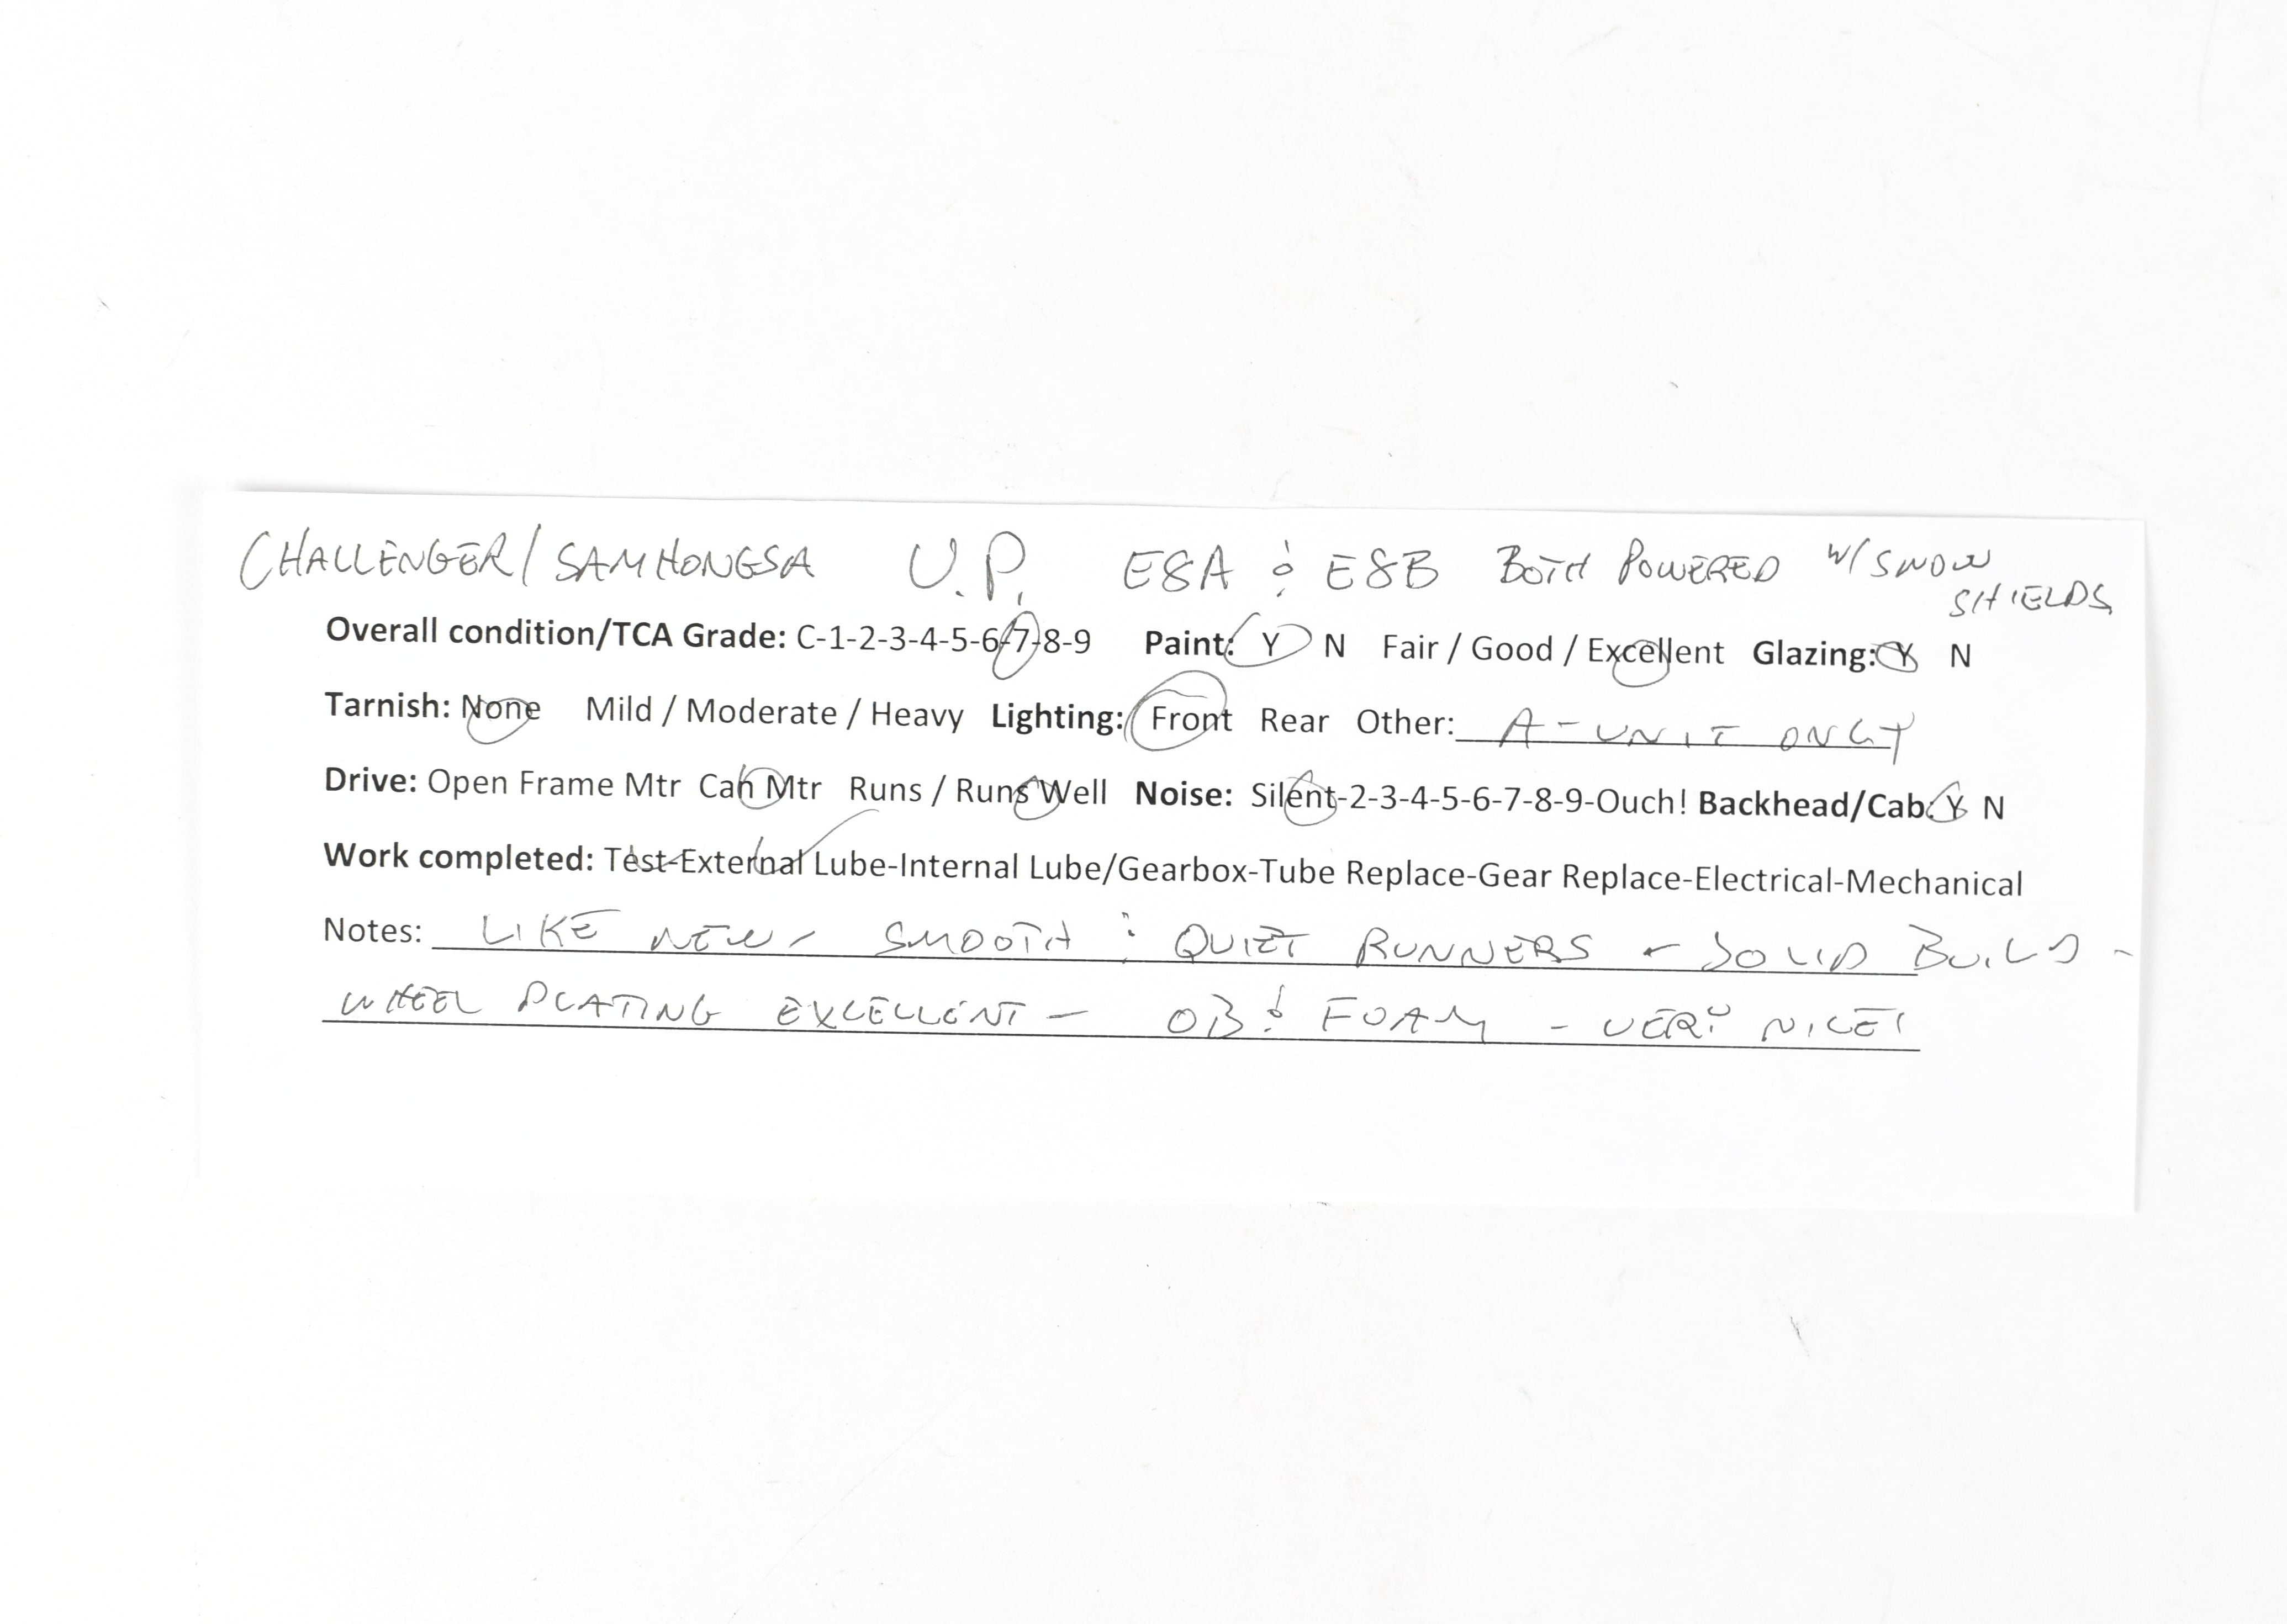 CHALLENGER/SAMHONGSA U.P. E8A & E8B BOTH POWERED W/SNOW
SHIELDS
Overall condition/TCA Grade: C-1-2-3-4-5-6-7-8-9 Paint: Y N Fair / Good / Excellent Glazing: Y N
Tarnish: None Mild / Moderate / Heavy Lighting: Front Rear Other: A-UNIT ONLY
Drive: Open Frame Mtr Can Mtr Runs / Runs Well Noise: Silent-2-3-4-5-6-7-8-9-Ouch! Backhead/Cab: Y N
Work completed: Test-External Lube-Internal Lube/Gearbox-Tube Replace-Gear Replace-Electrical-Mechanical
Notes: LIKE NEW - SMOOTH & QUIET RUNNERS - SOLID BUILD -
WHEEL PLATING EXCELLENT - OB & FOAM - VERY NICE!